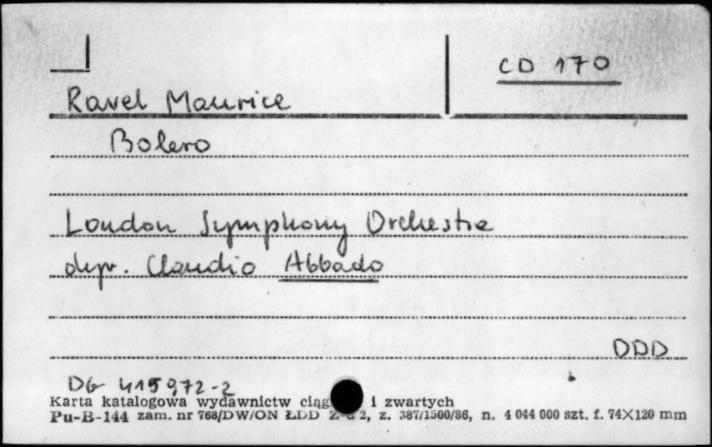 CD 170
Ravel Maurice
Bolero
London Symphony Orchestra
dyr. Claudio Abbado
DDD
DG 415 972-2
Karta katalogowa wydawnictw ciąg i zwartych
Pu-B-144 zam. nr 768/DW/ON ŁDD Z-d 2, z. 387/1500/86, n. 4 044 000 szt. f. 74X120 mm